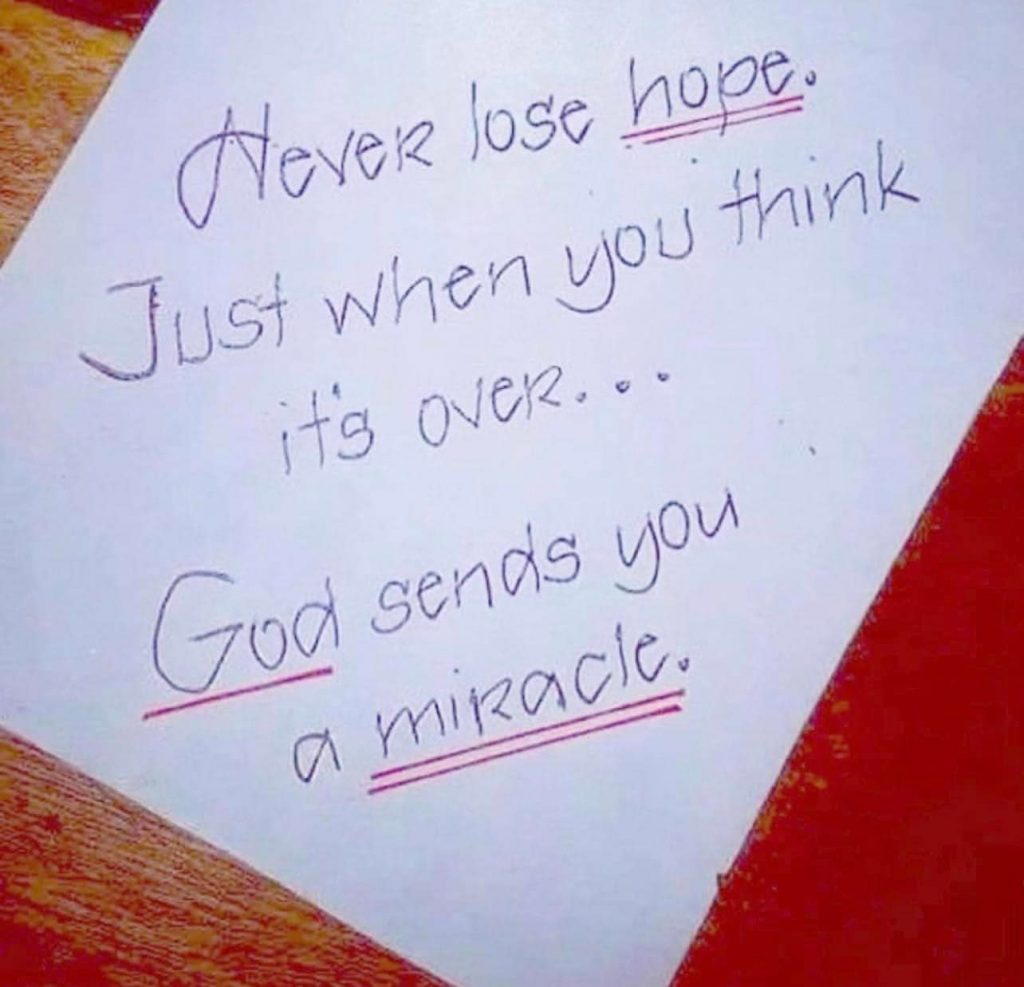 Never lose hope.
Just when you think
it's over...
God sends you
a miracle.